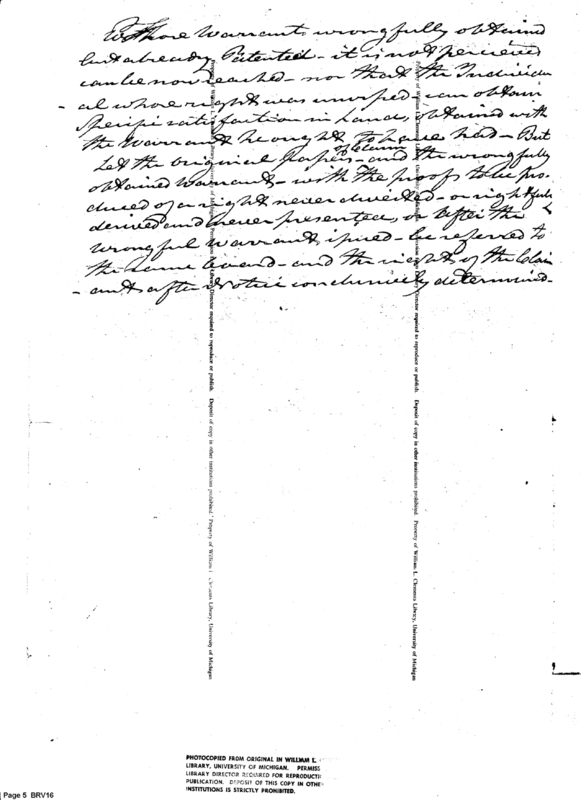 To those Warrants wrongfully obtained
but already Patented - it is not perceived
can be now reached - nor that the Individu
- al whose right was usurped can obtain
specific satisfaction in Lands, obtained with
the Warrant he ought to have had - But
of claim
Let the original papers - and the wrongfully
obtained Warrant - with the proofs to be pro-
duced of a right never divested - or rightfully
derived and never presented, or after the
wrongful Warrant issued - be referred to
the same board - and the rights of the Claim
- ants after Notice conclusively determined -
Director required to reproduce or publish. Deposit of copy in other institutions prohibited. Property of William L. Clements Library, University of Michigan
Director required to reproduce or publish. Deposit of copy in other institutions prohibited. Property of William L. Clements Library, University of Michigan
PHOTOCOPIED FROM ORIGINAL IN WILLIAM L.
LIBRARY, UNIVERSITY OF MICHIGAN. PERMISS
LIBRARY DIRECTOR REQUIRED FOR REPRODUCTI
PUBLICATION. DEPOSIT OF THIS COPY IN OTHE
INSTITUTIONS IS STRICTLY PROHIBITED.
Page 5 BRV16